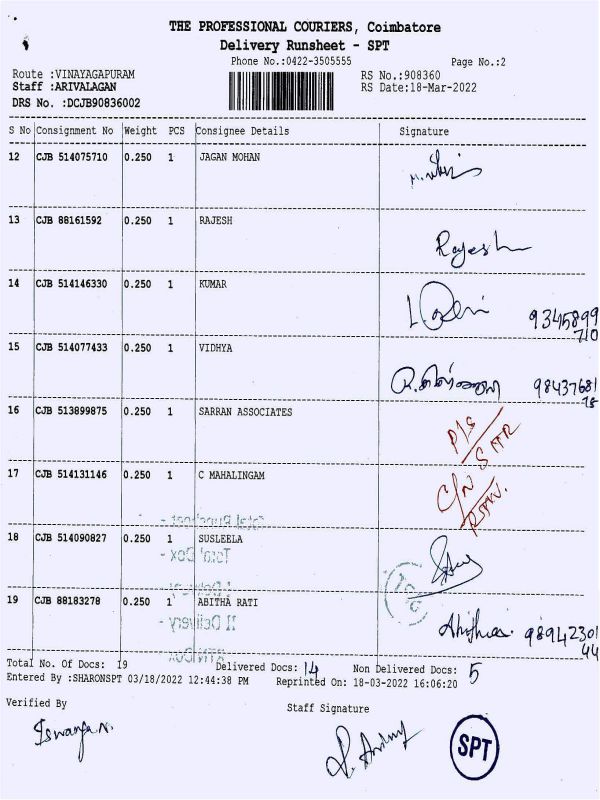 THE PROFESSIONAL COURIERS, Coimbatore
Delivery Runsheet - SPT
Phone No.:0422-3505555
Page No.:2
Route :VINAYAGAPURAM
RS No.:908360
Staff :ARIVALAGAN
RS Date:18-Mar-2022
DRS No. :DCJB90836002
S No Consignment No Weight PCS Consignee Details Signature
12 CJB 514075710 0.250 1 JAGAN MOHAN
13 CJB 88161592 0.250 1 RAJESH
Rajesh
14 CJB 514146330 0.250 1 KUMAR
9345899
710
15 CJB 514077433 0.250 1 VIDHYA
98437681
78
16 CJB 513899875 0.250 1 SARRAN ASSOCIATES
P/S
17 CJB 514131146 0.250 1 C MAHALINGAM
C/N
Total Runsheet -
18 CJB 514090827 0.250 1 SUSLEELA
Total Cox -
I Delivery
19 CJB 88183278 0.250 1 ABITHA RATI
98942301
44
II Delivery -
RTN/Cox
Total No. Of Docs: 19 Delivered Docs: 14 Non Delivered Docs: 5
Entered By :SHARONSPT 03/18/2022 12:44:38 PM Reprinted On: 18-03-2022 16:06:20
Verified By Staff Signature
SPT